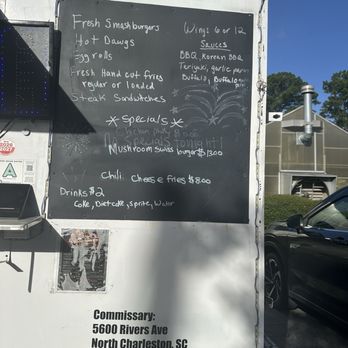 Fresh Smashburgers
Hot Dawgs
Egg rolls
Fresh Hand cut fries
regular or loaded
Steak Sandwitches
Wings 6 or 12
Sauces
BBQ, Korean BBQ
Teriyaki, garlic parm
Buffalo, Buffalo
*Specials*
Mushroom swiss burger $13.00
Chili Cheese Fries $8.00
Drinks $2
Coke, Diet coke, Sprite, Water
Commissary:
5600 Rivers Ave
North Charleston, SC